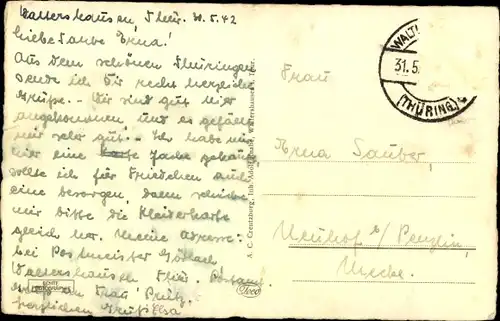 Waltershausen, Thür. 30.5.42
Liebe Taube Erna!
Aus dem schönen Thüringen
sende ich Dir recht herzliche
Grüße. - Wir sind gut hier
angekommen und es gefällt
mir sehr gut. - Ich habe mir
hier eine Jacke gekauft,
sollte ich für Friedchen auch
eine besorgen, dann schicke
mir bitte die Kleiderkarte
gleich her. Meine Adresse:
bei Postmeister
Waltershausen Thür. Postamt
Frau
herzlichen
A. C. Crentzburg, Inh. Adolf Waltershausen, Thür.
WALT
31.5.
(THÜRING.)
Frau
Erna Sauber,
Neuhof b/Penzlin,
Meckl.